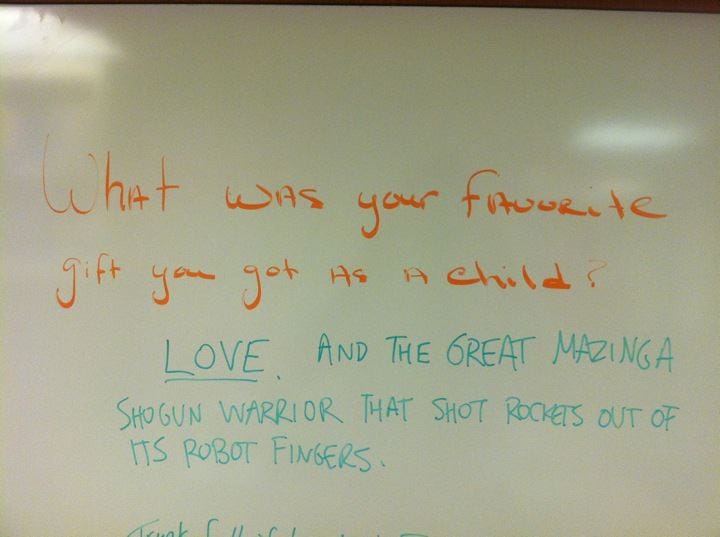 What was your favorite
gift you got as a child?
LOVE. AND THE GREAT MAZINGA
SHOGUN WARRIOR THAT SHOT ROCKETS OUT OF
ITS ROBOT FINGERS.